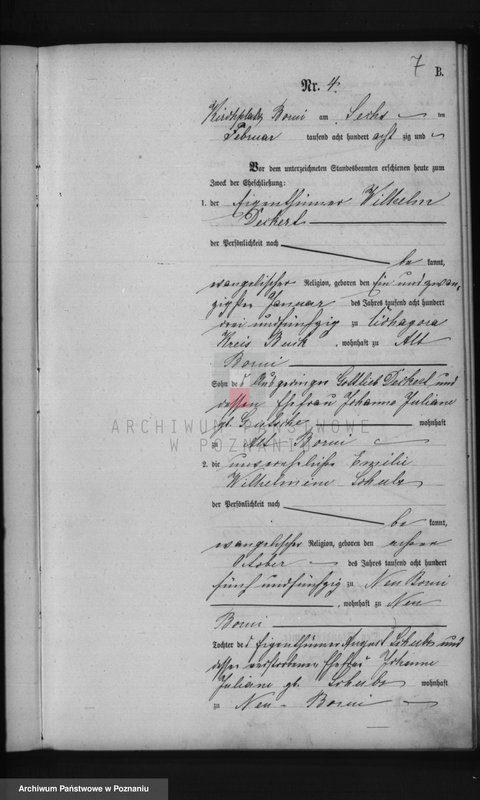 7 B.
Nr. 4.
Kirchplatz Borui am Sechs ten
Februar tausend acht hundert acht zig und
Vor dem unterzeichneten Standesbeamten erschienen heute zum
Zweck der Eheschließung:
1. der Eigenthümer Wilhelm
Deckert
der Persönlichkeit nach
be kannt,
evangelischer Religion, geboren den ein und zwan¬
zigsten Januar des Jahres tausend acht hundert
drei und fünfzig zu
Kreis Buck, wohnhaft zu Alt
Borui
Sohn des Gottlieb Deckert und
dessen Ehefrau Johanna Juliane
gb. wohnhaft
zu Alt Borui
2. die unverehelichte Emilie
Wilhelmine Schulz
der Persönlichkeit nach
be kannt,
evangelischer Religion, geboren den
October des Jahres tausend acht hundert
fünf und fünfzig zu Neu Borui
, wohnhaft zu Neu
Borui
Tochter des Eigenthümers August Schulz und
dessen verstorbenen Ehefrau Johanne
Juliane gb. Schulz wohnhaft
zu Neu-Borui
ARCHIWUM PAŃSTWOWE
W POZNANIU
Archiwum Państwowe w Poznaniu